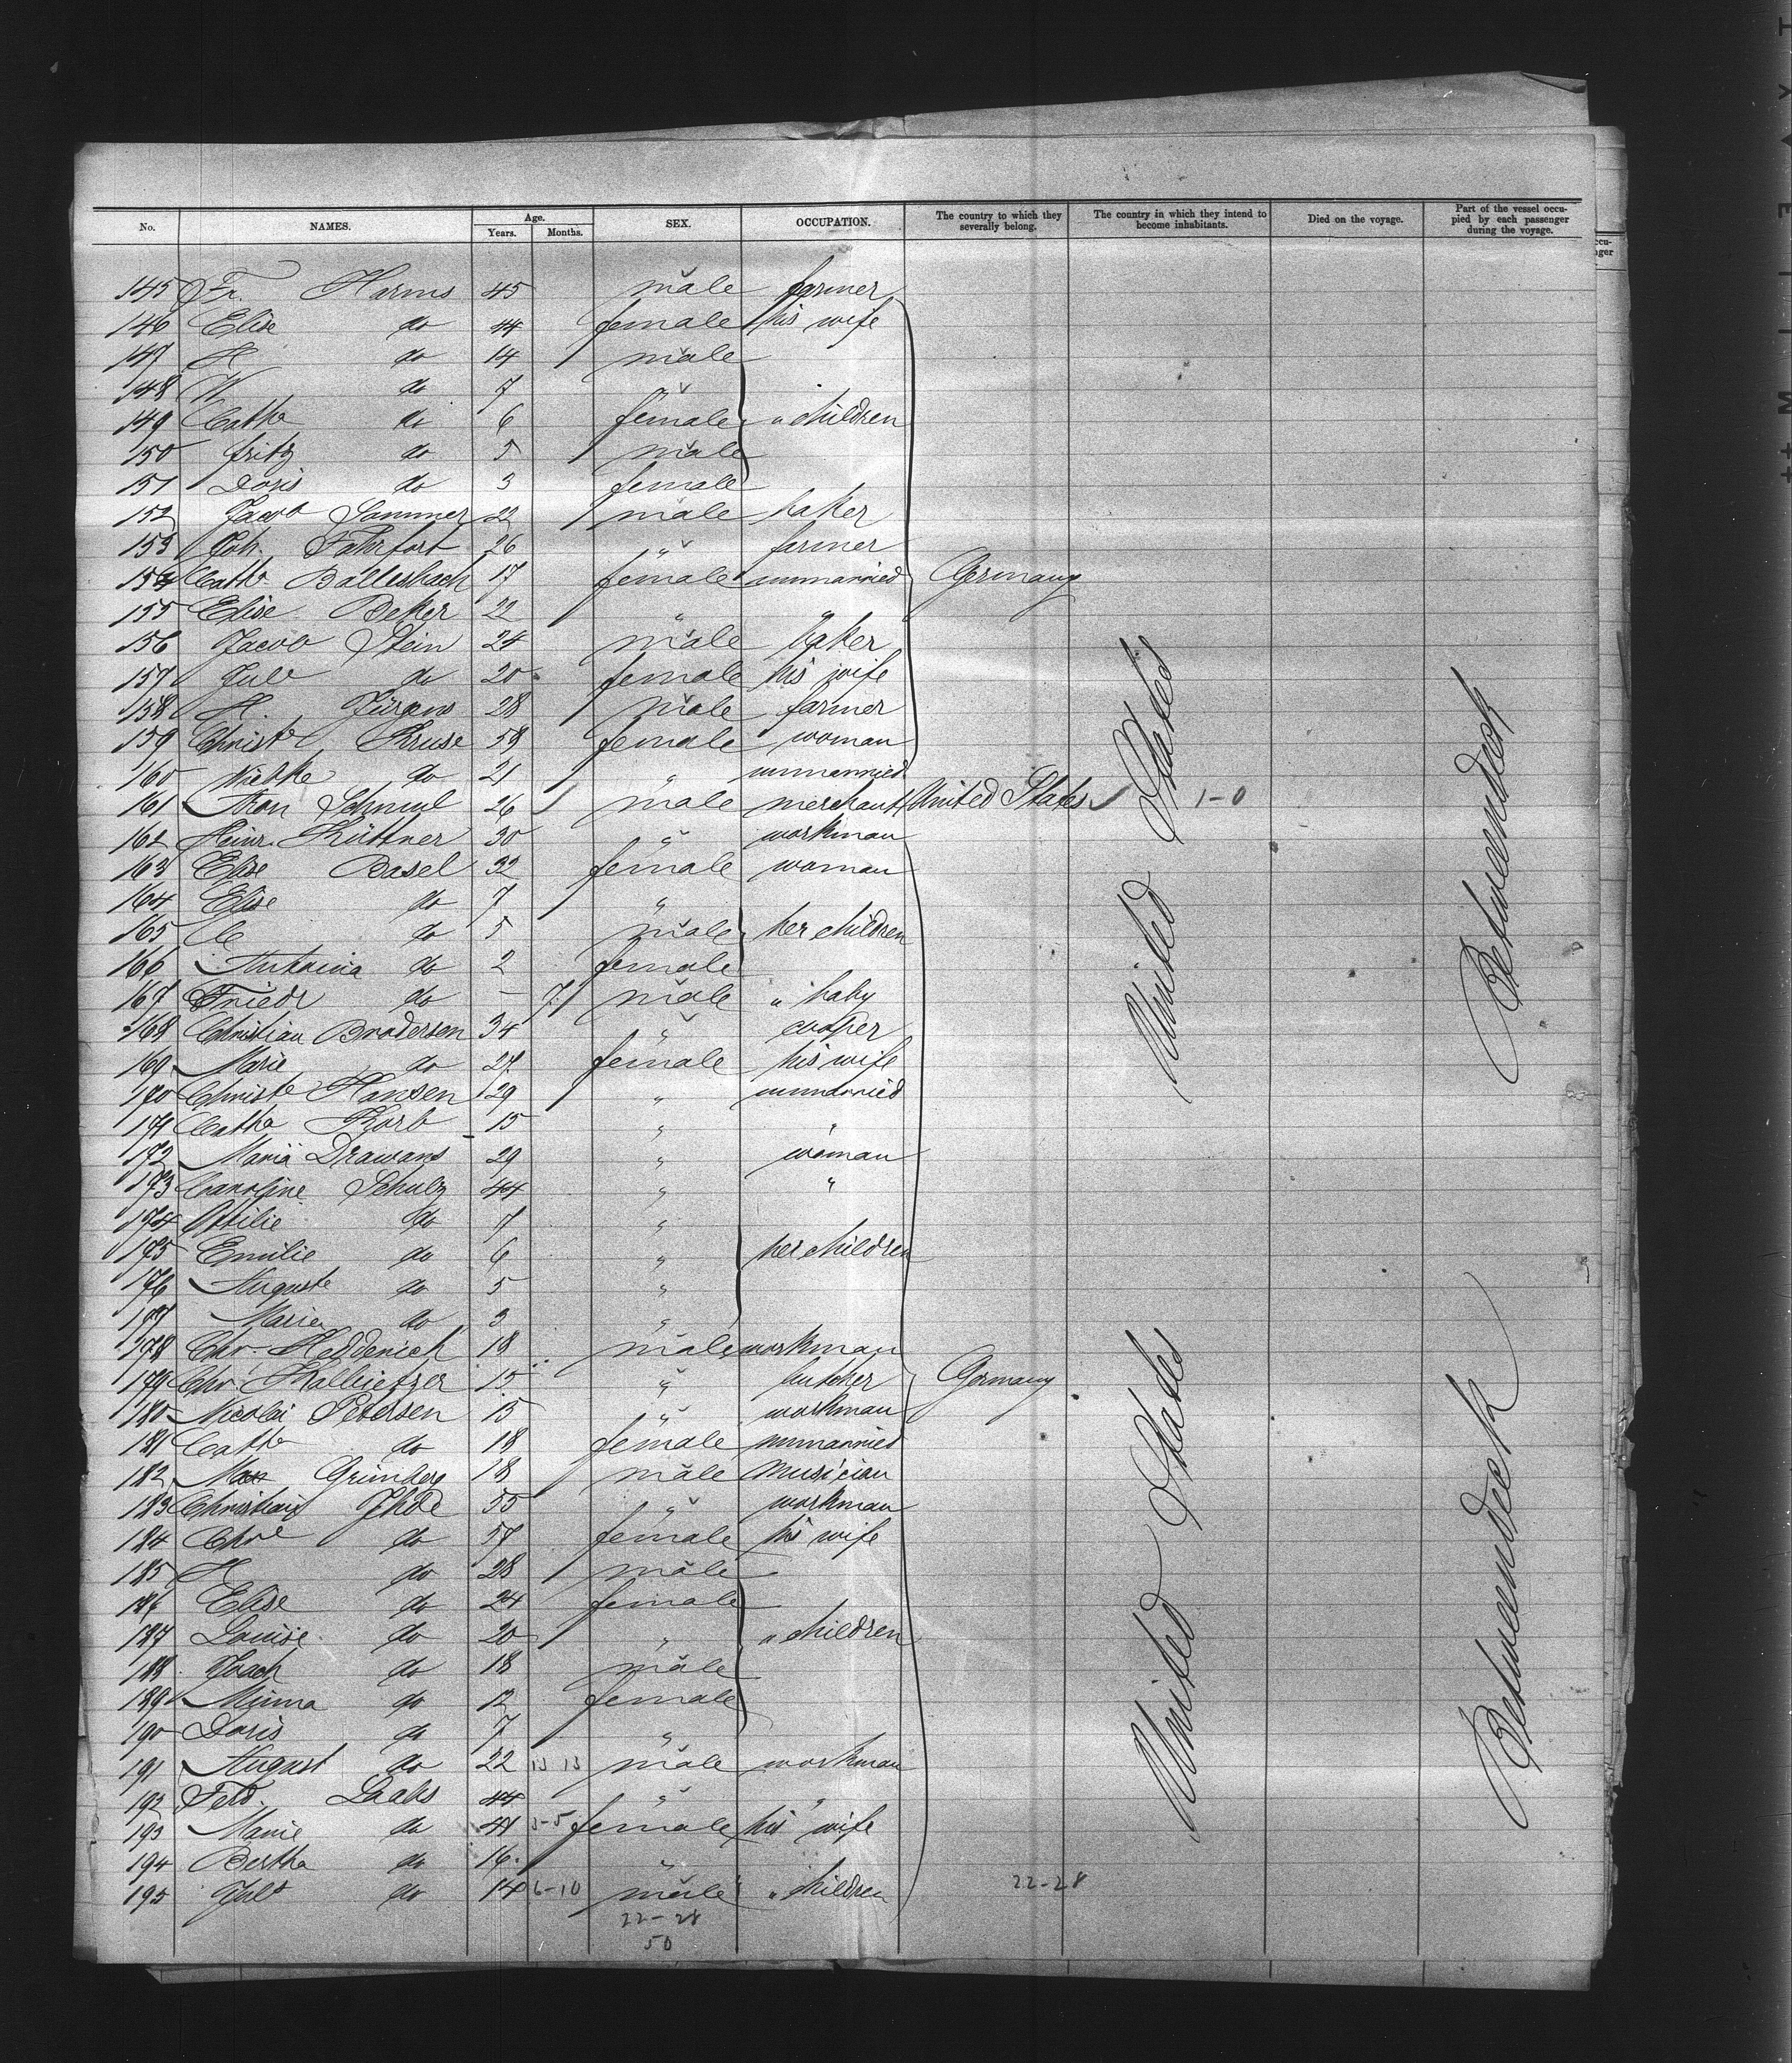 No. NAMES. Age. Years. Months. SEX. OCCUPATION. The country to which they severally belong. The country in which they intend to become inhabitants. Died on the voyage. Part of the vessel occupied by each passenger during the voyage.
145 Fr. Harms 45 male farmer
146 Elise do 44 female his wife
147 H do 14 male
148 W do 7 "
149 Cathe do 6 female " children
150 Fritz do 5 male
151 Doris do 3 female
152 Jacob Sommer 22 male baker
153 Joh. Fahrfort 26 " farmer
154 Cath. 17 female unmarried Germany
155 Elise Beker 22 " "
156 Jacob Stein 24 male baker
157 do 20 female his wife
158 H. Jürgens 28 male farmer
159 Christe Kruse 58 female woman
160 Wiebke do 21 " unmarried
161 Aron Schmul 26 male merchant United States 1-0
162 Heinr. Küttner 30 " workman
163 Elise Basel 32 female woman
164 Elise do 7 "
165 do 5 male her children
166 do 2 female
167 Friedr do - 7 male " baby
168 Christian Brodersen 34 " cooper
169 Marie do 27 female his wife
170 Christe Hansen 29 " unmarried
171 Cathe Korb 15 " "
172 Maria Drawans 29 " woman
173 Caroline Schulz 44 " "
174 Ottilie do 7 "
175 Emilie do 6 " her children
176 Auguste do 5 "
177 Maria do 3 "
178 Chr. Hedderich 18 male workman
179 Chr. 15 " butcher Germany
180 Nicolai Petersen 15 " workman
181 Cathe do 18 female unmarried
182 Max Grünberg 18 male musician
183 Christian Ihde 55 " workman
184 Chre do 57 female his wife
185 H do 28 male
186 Elise do 24 female
187 Louise do 20 " " children
188 Joach do 18 male
189 Minna do 12 female
190 Doris do 7 "
191 August do 22 13 13 male workman
192 Ferd. Laabs 44 " "
193 Marie do 41 3-5 female his wife
194 Bertha do 16 "
195 Juls do 14 6-10 male " children 22-28
22-28
50
United States
Betweendeck
United States
Betweendeck